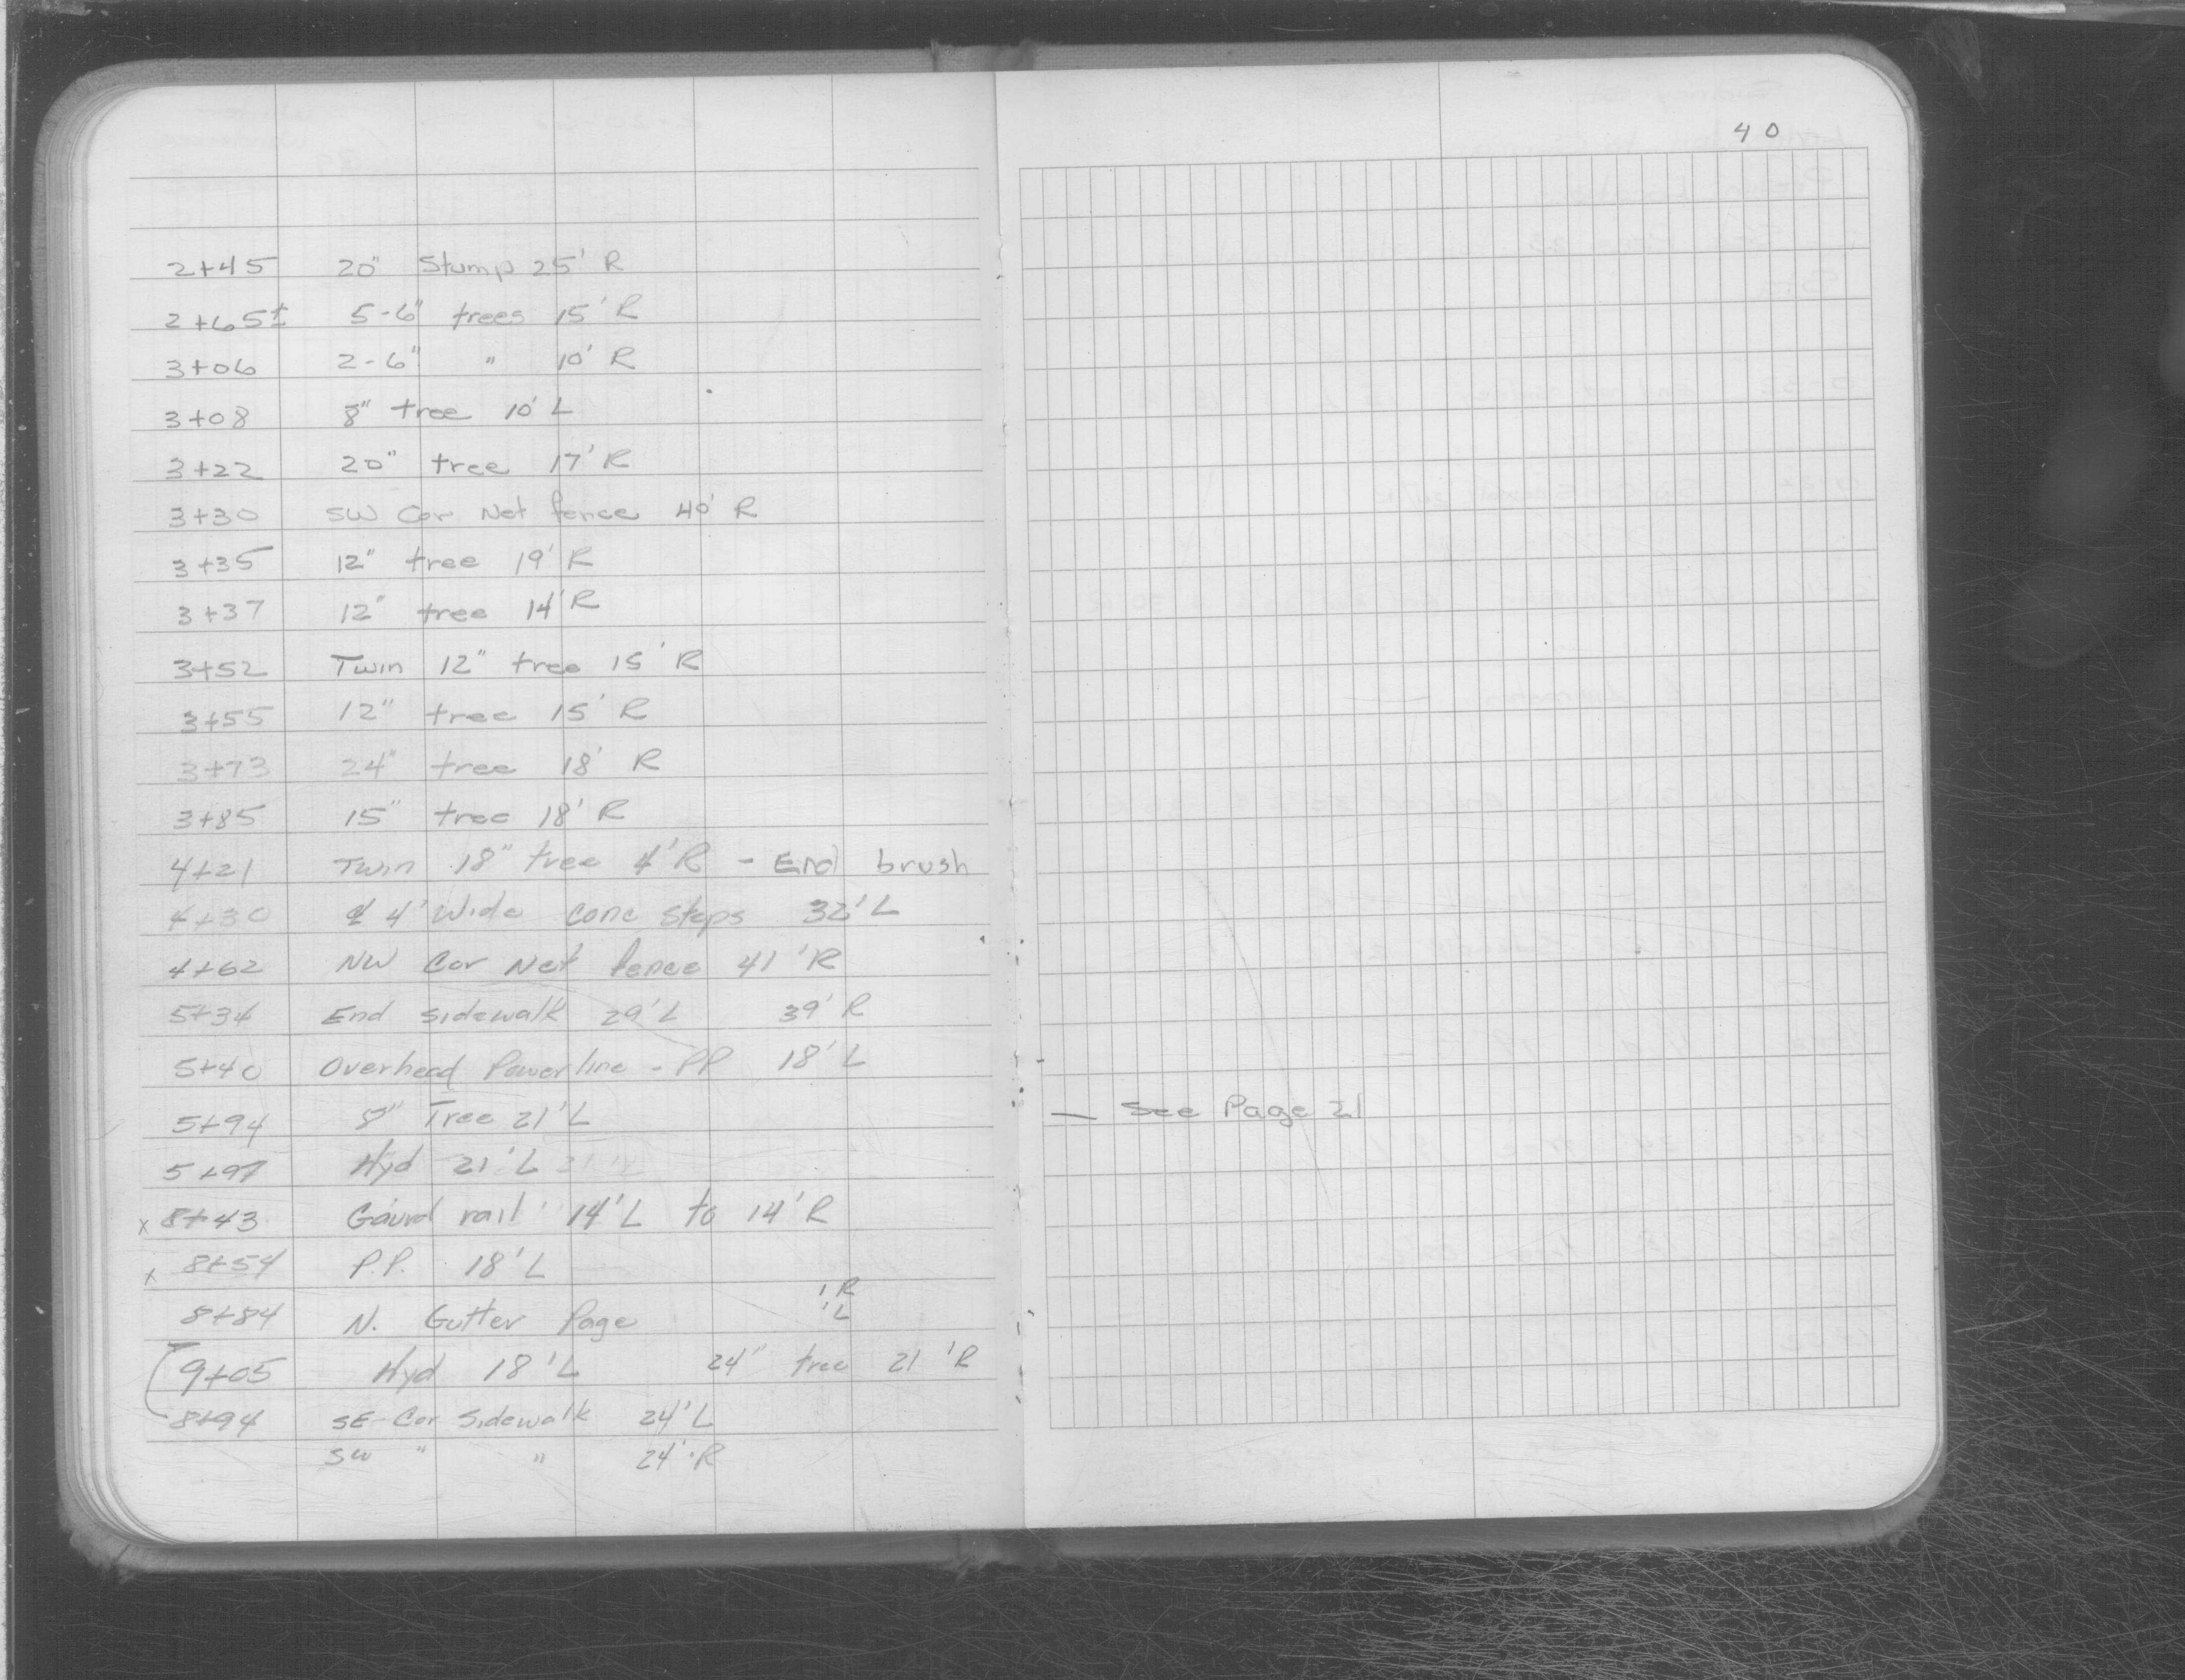 40
2+45 20" Stump 25' R
2+65± 5-6" trees 15' R
3+06 2-6" " 10' R
3+08 8" tree 10' L
3+22 20" tree 17' R
3+30 SW Cor Net fence 40' R
3+35 12" tree 19' R
3+37 12" tree 14' R
3+52 Twin 12" tree 15' R
3+55 12" tree 15' R
3+73 24" tree 18' R
3+85 15" tree 18' R
4+21 Twin 18" tree 4' R - End brush
4+30 ₵ 4' Wide conc steps 32' L
4+62 NW Cor Net fence 41' R
5+34 End sidewalk 29' L 39' R
5+40 Overhead Powerline - PP 18' L
5+94 8" Tree 21' L
— See Page 21
5+97 Hyd 21' L
x 8+43 Gaurd rail 14' L to 14' R
x 8+54 P.P. 18' L
' R
8+84 N. Gutter Page ' L
9+05 Hyd 18' L 24" tree 21' R
8+94 SE-Cor Sidewalk 24' L
SW " " 24' R